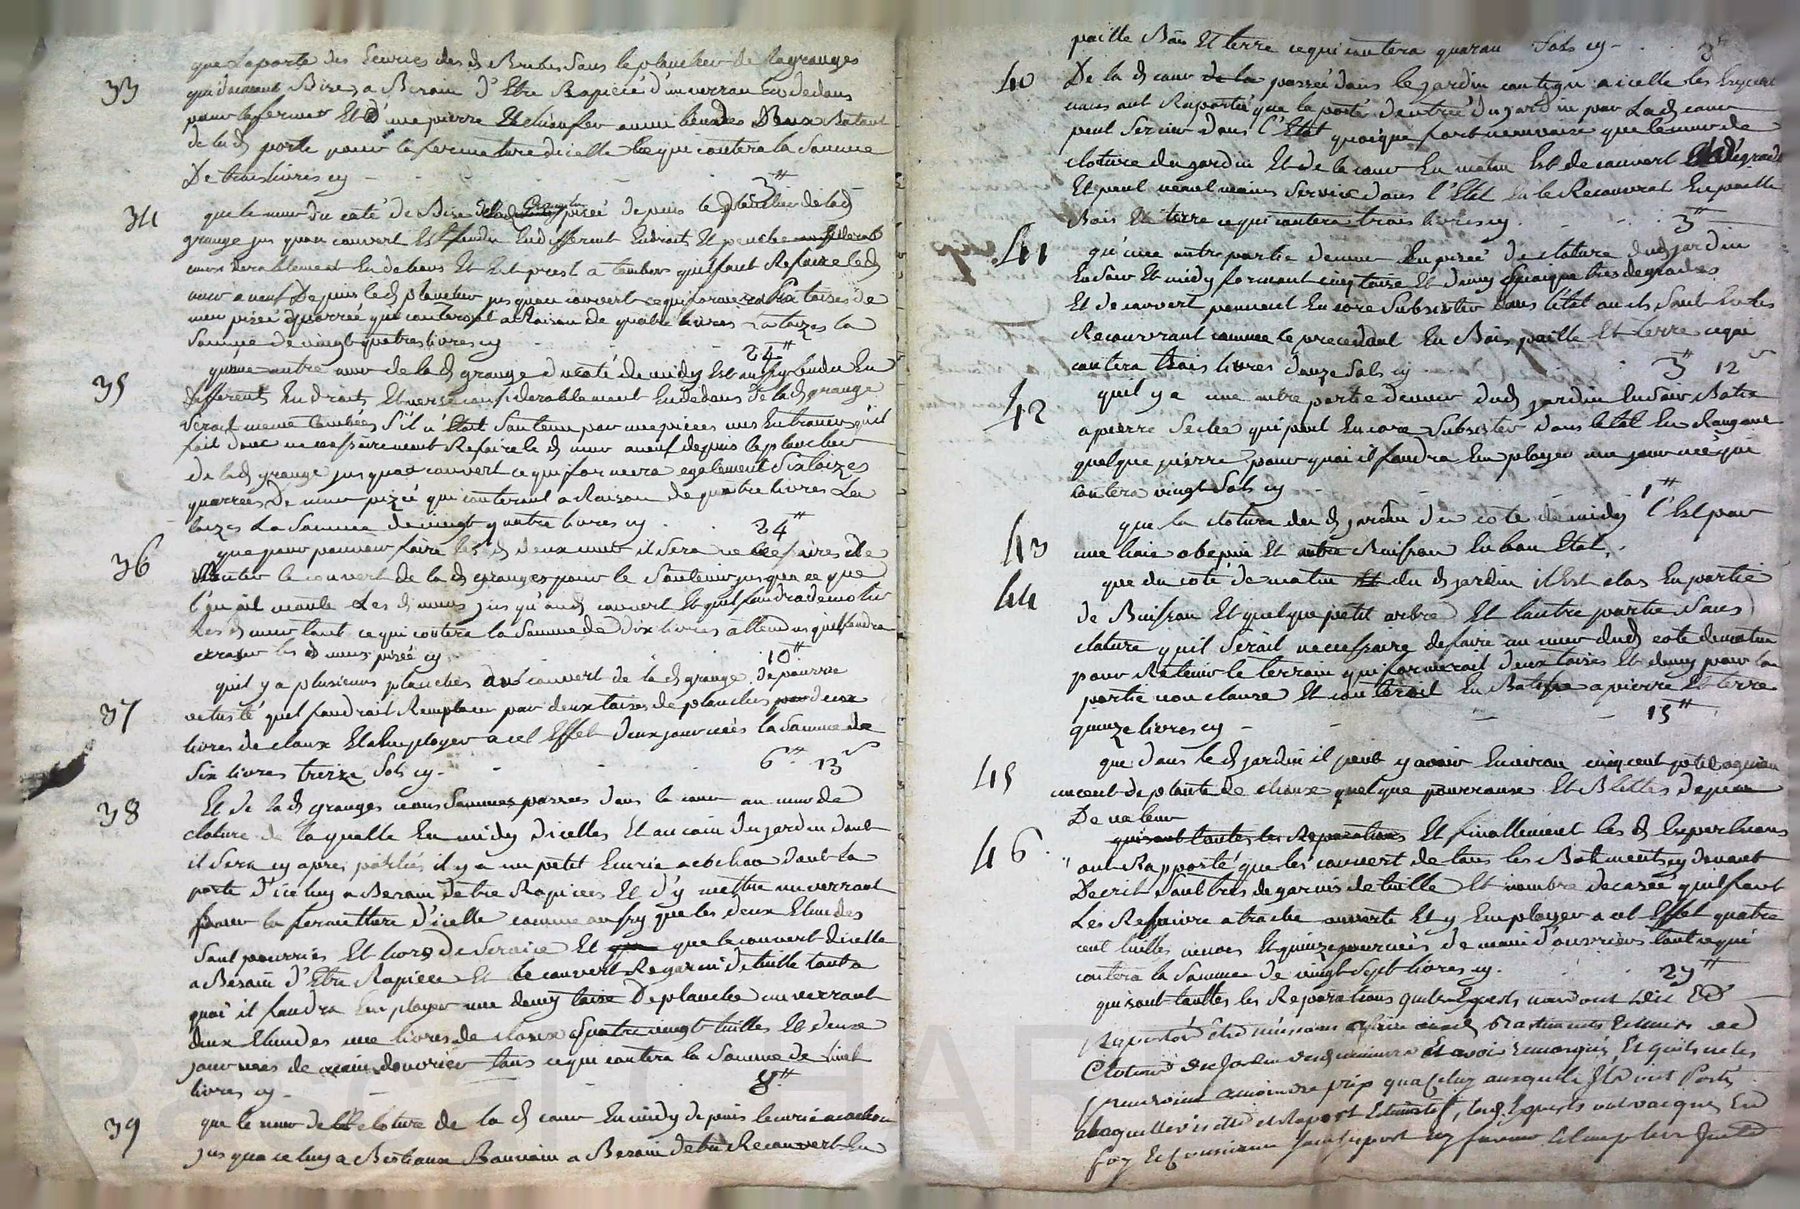 33 que La porte des Ecuries des d Brebis sous le plancher de la granges
qui donnent Bize a Besoin d'Etre Rapiécé d'un verrou En dedans
pour la fermer Et d'une pierre
de la d porte pour la fermeture dicelle ce qui contera la Somme
De trois livres cy - 3"
34 que le mur du caté de Bize de la d grange pizée depuis le plancher de lad
grange jus quau couvert Est fendu En differents Endroits Et penche
considerablement En dehors Et Est prest a tomber quil faut Refaire led
mur a neuf Depuis led plancher jus quau couvert ce qui formera Six toises de
mur pizée quarrée qui conteront a Raison de quatre livres La toizes la
Somme de vingt quatres livres cy - 24"
35 qu'une autre mur de la d grange du coté du midy Est aussy fendu En
differents Endroits Et verse considerablement En dedans de la d grange
Serait meme tombée S'il n'Etoit Soutenu par une pieces mis En travers qu'il
fait donc necessairement Refaire le d mur a neuf depuis le plancher
de la d grange jus quau couvert ce qui formera egalement Six toizes
quarrées De mur pizée qui conteront a Raison de quatre livres La
toizes La Somme de vingt quatre livres cy . 24"
36 que pour pouvoir faire les d deux murs il Sera necessaires de
le couvert de la d granges pour le Soutenir jus qua ce que
l'on ait monté Les d murs jus qu'aud couvert Et quil faudra demolir
Les d murs tout ce qui contera la Somme de Dix livres attendu quil faudra
les d murs pizée cy 10"
37 quil y a plusieurs planches au couvert de la d grange de pourrie
vetusté quil faudrait Remplacer par deux toises de planches deux
livres de cloux Et a Employer a cet Effet deux journées la Somme de
Six livres treize Sols cy - 6" 13s
38 Et de la d granges nous Sommes passees dans la cour au mur de
cloture de la quelle En midy dicelles Et au coin du jardin dont
il Sera cy apres parlée il y a un petit Ecurie a cochon dont la
porte d'iceluy a Besoin detre Rapiecé Et d'y mettre un verrout
pour la fermetture d'icelle comme aussy que les deux Etendes
Sont pourries Et hors de Service Et que le couvert dicelle
a Besoin d'Etre Rapiecé Et le couvert Regarni de tuille tout a
quoi il faudra Employer une demy toise De planche un verrout
deux Etendes une livres de cloux quatre vingt tuilles Et deux
journées de main douvrier tous ce qui contera la Somme de huit
livres cy - 8"
39 que le mur de cloture de la d cour En midy depuis lecurie a cochon
jus qua celuy a Bestiaux Bouvain a Besoin detre Recouvert En
paille Bois Et terre ce qui contera quaran Sols cy - 2"
40 De la d cour passée dans le jardin contigu a icelle les Experts
nous ont Raporté que la porte d'entrée du jardin par La d cour
peut Servir dans l'Etat quoique fort mauvaise que le mur de
cloture du jardin Et de la cour En matin Est de couvert dégradé
Et peut neanmoins Servire dans l'Etat En le Recouvrant En paille
Bois Et terre ce qui contera trois livres cy . 3"
41 qu'une autre partie de mur En pizée de cloture dud jardin
En Soir Et midy formant cinq toise Et demy quoique tres degradés
Et de couvert peuvent Encore Subsister dans l'état ou ils Sont En les
Recouvrant comme le precedant En Bois paille Et terre ce qui
contera trois livres douze Sols cy . 3" 12s
42 quil y a une autre partie de mur dud jardin En Soir Batie
a pierre Seche qui peut Encore Subsister dans letat En changeant
quelque pierre pour quoi il faudra Employer une journée qui
contera vingt Sols cy 1"
43 que la cloture du d jardin du coté de midy C'Est par
une haie obepin Et autre Buisson En bon Etat.
44 que du coté de matin du d jardin il Est clos En partie
de Buisson Et quelque petit arbre Et l'autre partie Sans
cloture quil Serait necessaire de faire un mur dud coté de matin
pour Retenir le terrain qui formerait deux toises Et demy pour la
partie non clause Et conterait En Batisse a pierre Et terre
quinze livres cy - 15"
45 que dans le d jardin il peut y avoir Environ cinq cent
un cent de plante de choux quelque pourreaux Et Blettes de peu
De valeur
46 qui sont toutes les Reparations Et finallement les d Experts nous
ont Rapporté que les couvert de tous les Batiments cy devant
Decrit Sont tres degarnis de tuille Et nombre de casée quil faut
Les Refaire a tranche ouverte Et y Employer a cet Effet quatre
cent tuilles neuves Et quinze journées de main d'ouvriers tout ce qui
contera la Somme de vingt Sept livres cy . 27"
qui sont touttes les Reparations que les Experts nous ont dit Et
Rapporté Etre necessaires a faire aud Bastiments Et murs de
Cloture du Jardin Et avoir remarqués Et quils ne les
pourroint a moindre prix que celuy auxquels Ils ont Portés
a laquelle visitte et Raport Estimatif, lesd Experts ont vacqués En
foy Et Consience